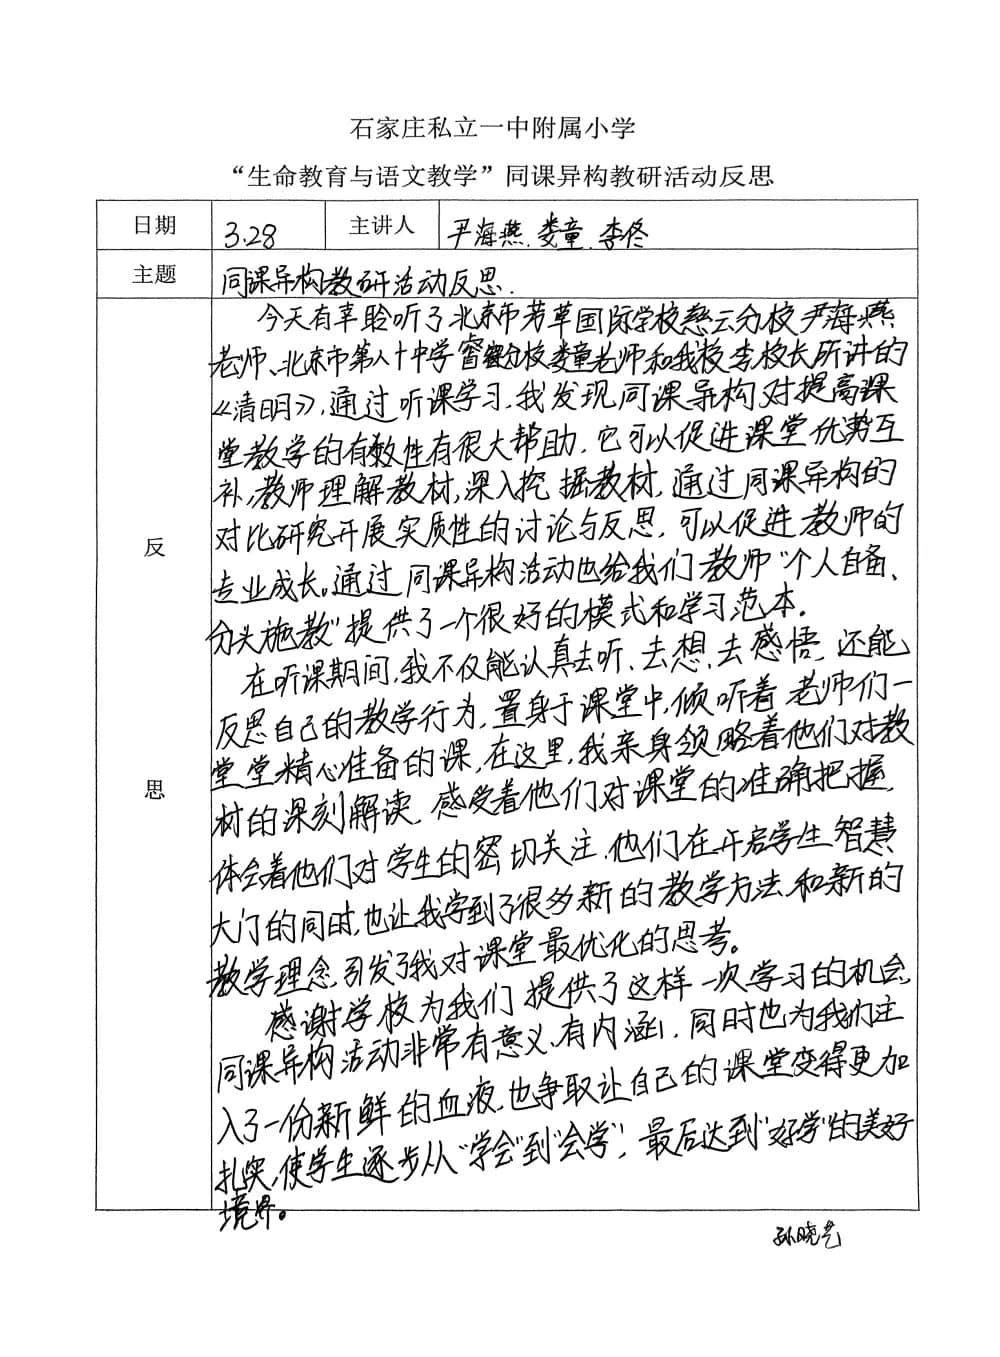 石家庄私立一中附属小学
“生命教育与语文教学”同课异构教研活动反思
日期 3.28 主讲人 尹海燕.娄童.李佟
主题 同课异构教研活动反思.
今天有幸聆听了北京市芳草国际学校慈云分校尹海燕
老师、北京市第八十中学睿分校娄童老师和我校李校长所讲的
《清明》,通过听课学习,我发现同课异构对提高课
堂教学的有效性有很大帮助,它可以促进课堂优势互
补,教师理解教材,深入挖掘教材,通过同课异构的
对比研究开展实质性的讨论与反思,可以促进教师的
专业成长。通过同课异构活动也给我们教师“个人自备、
分头施教”提供了一个很好的模式和学习范本.
在听课期间,我不仅能认真去听、去想、去感悟,还能
反思自己的教学行为,置身于课堂中,倾听着老师们一
堂堂精心准备的课,在这里,我亲身领略着他们对教
材的深刻解读,感受着他们对课堂的准确把握,
体会着他们对学生的密切关注.他们在开启学生智慧
大门的同时,也让我学到了很多新的教学方法和新的
教学理念,引发了我对课堂最优化的思考。
感谢学校为我们提供了这样一次学习的机会,
同课异构活动非常有意义、有内涵,同时也为我们主
入了一份新鲜的血液,也争取让自己的课堂变得更加
扎实,使学生逐步从“学会”到“会学”,最后达到“好学”的美好
境界。
反
思
孙晓艺